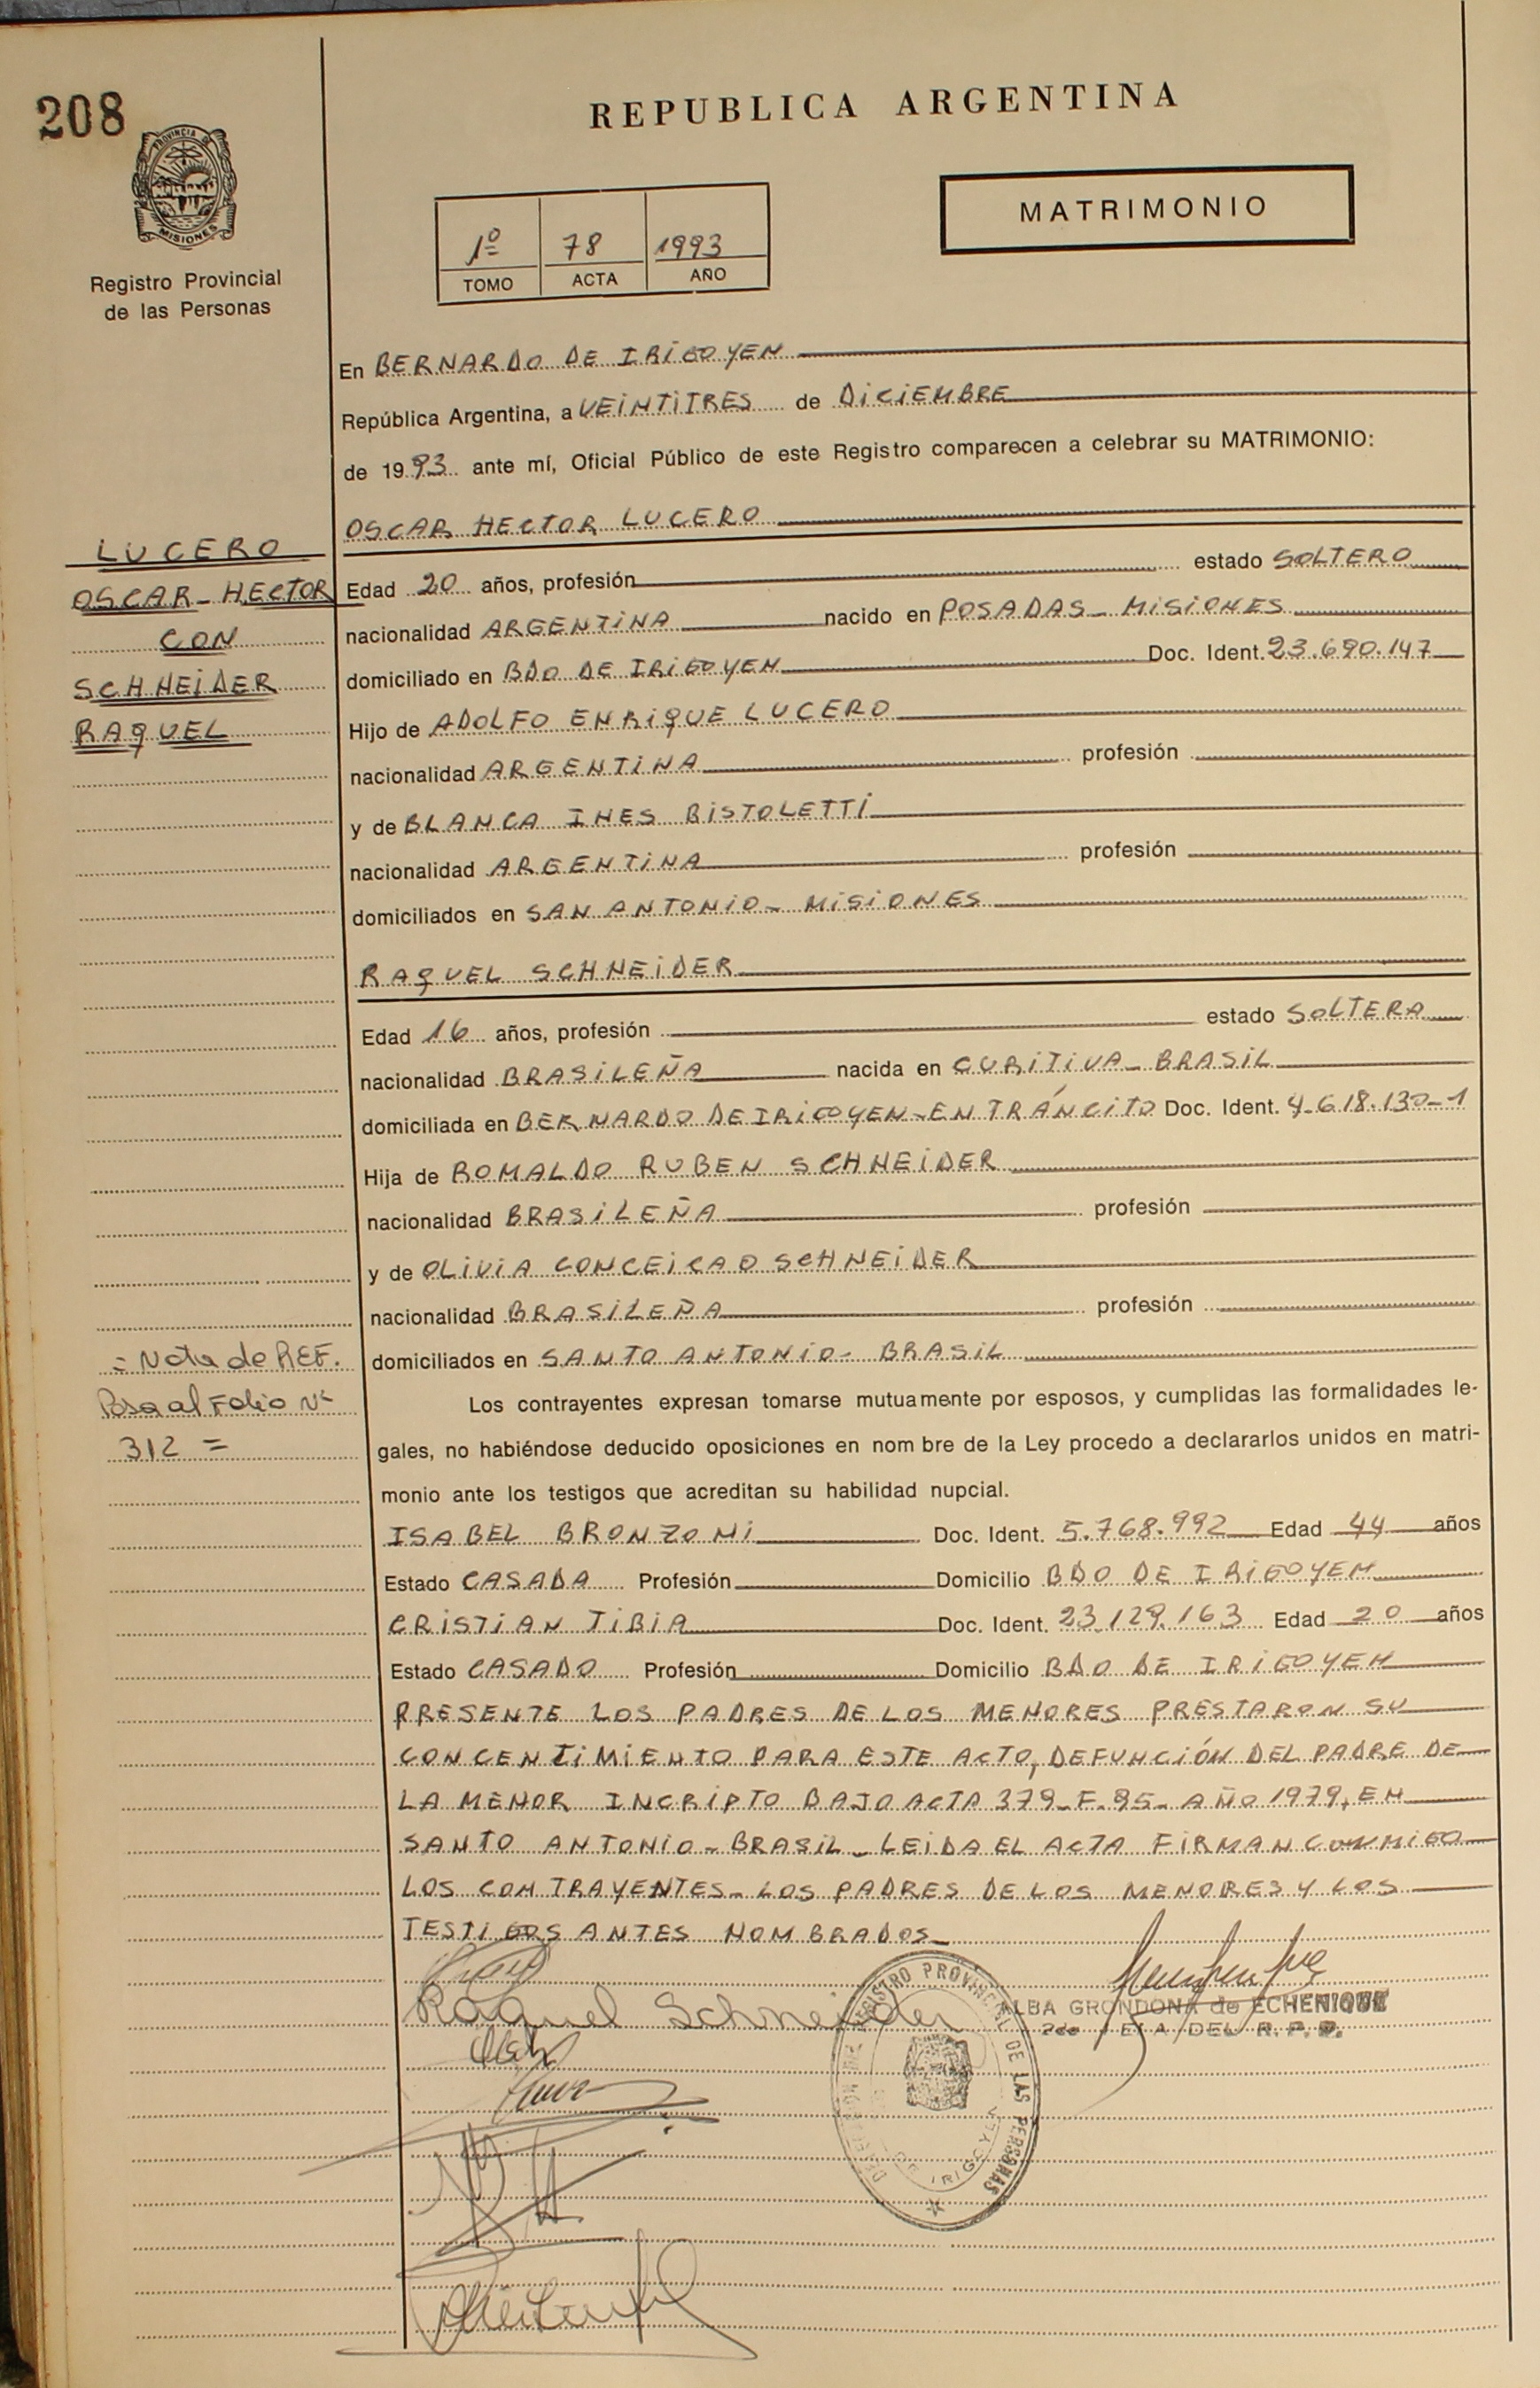 208
REPUBLICA ARGENTINA
PROVINCIA DE
MISIONES
Registro Provincial
de las Personas
1º 78 1993
TOMO ACTA AÑO
MATRIMONIO
En BERNARDO DE IRIGOYEN
República Argentina, a VEINTITRES de DICIEMBRE
de 1993 ante mí, Oficial Público de este Registro comparecen a celebrar su MATRIMONIO:
LUCERO
OSCAR-HECTOR
CON
SCHNEIDER
RAQUEL
OSCAR HECTOR LUCERO
Edad 20 años, profesión estado SOLTERO
nacionalidad ARGENTINA nacido en POSADAS-MISIONES
domiciliado en BDO DE IRIGOYEN Doc. Ident. 23.690.147
Hijo de ADOLFO ENRIQUE LUCERO
nacionalidad ARGENTINA profesión
y de BLANCA INES BISTOLETTI
nacionalidad ARGENTINA profesión
domiciliados en SAN ANTONIO- MISIONES
RAQUEL SCHNEIDER
Edad 16 años, profesión estado SOLTERA
nacionalidad BRASILEÑA nacida en CURITIVA-BRASIL
domiciliada en BERNARDO DE IRIGOYEN-EN TRÁNCITO Doc. Ident. 4.618.130-1
Hija de ROMALDO RUBEN SCHNEIDER
nacionalidad BRASILEÑA profesión
y de OLIVIA CONCEICAO SCHNEIDER
nacionalidad BRASILEÑA profesión
domiciliados en SANTO ANTONIO- BRASIL
= Nota de REF.
Pasa al Folio Nº
312 =
Los contrayentes expresan tomarse mutuamente por esposos, y cumplidas las formalidades le-
gales, no habiéndose deducido oposiciones en nom bre de la Ley procedo a declararlos unidos en matri-
monio ante los testigos que acreditan su habilidad nupcial.
ISABEL BRONZONI Doc. Ident. 5.768.992 Edad 44 años
Estado CASADA Profesión Domicilio BDO DE IRIGOYEN
CRISTIAN TIBIA Doc. Ident. 23.129.163 Edad 20 años
Estado CASADO Profesión Domicilio BDO DE IRIGOYEN
PRESENTE LOS PADRES DE LOS MENORES PRESTARON SU
CONCENTIMIENTO PARA ESTE ACTO, DEFUNCIÓN DEL PADRE DE
LA MENOR INCRIPTO BAJO ACTA 379-F.95- AÑO 1979, EN
SANTO ANTONIO-BRASIL-LEIDA EL ACTA FIRMAN CONMIGO
LOS CONTRAYENTES-LOS PADRES DE LOS MENORES Y LOS
TESTIGOS ANTES NOMBRADOS-
Raquel Schneider
REGISTRO PROVINCIAL DE LAS PERSONAS
DE IRIGOYEN
ALBA GRONDONA de ECHENIQUE
DEL R. P. P.